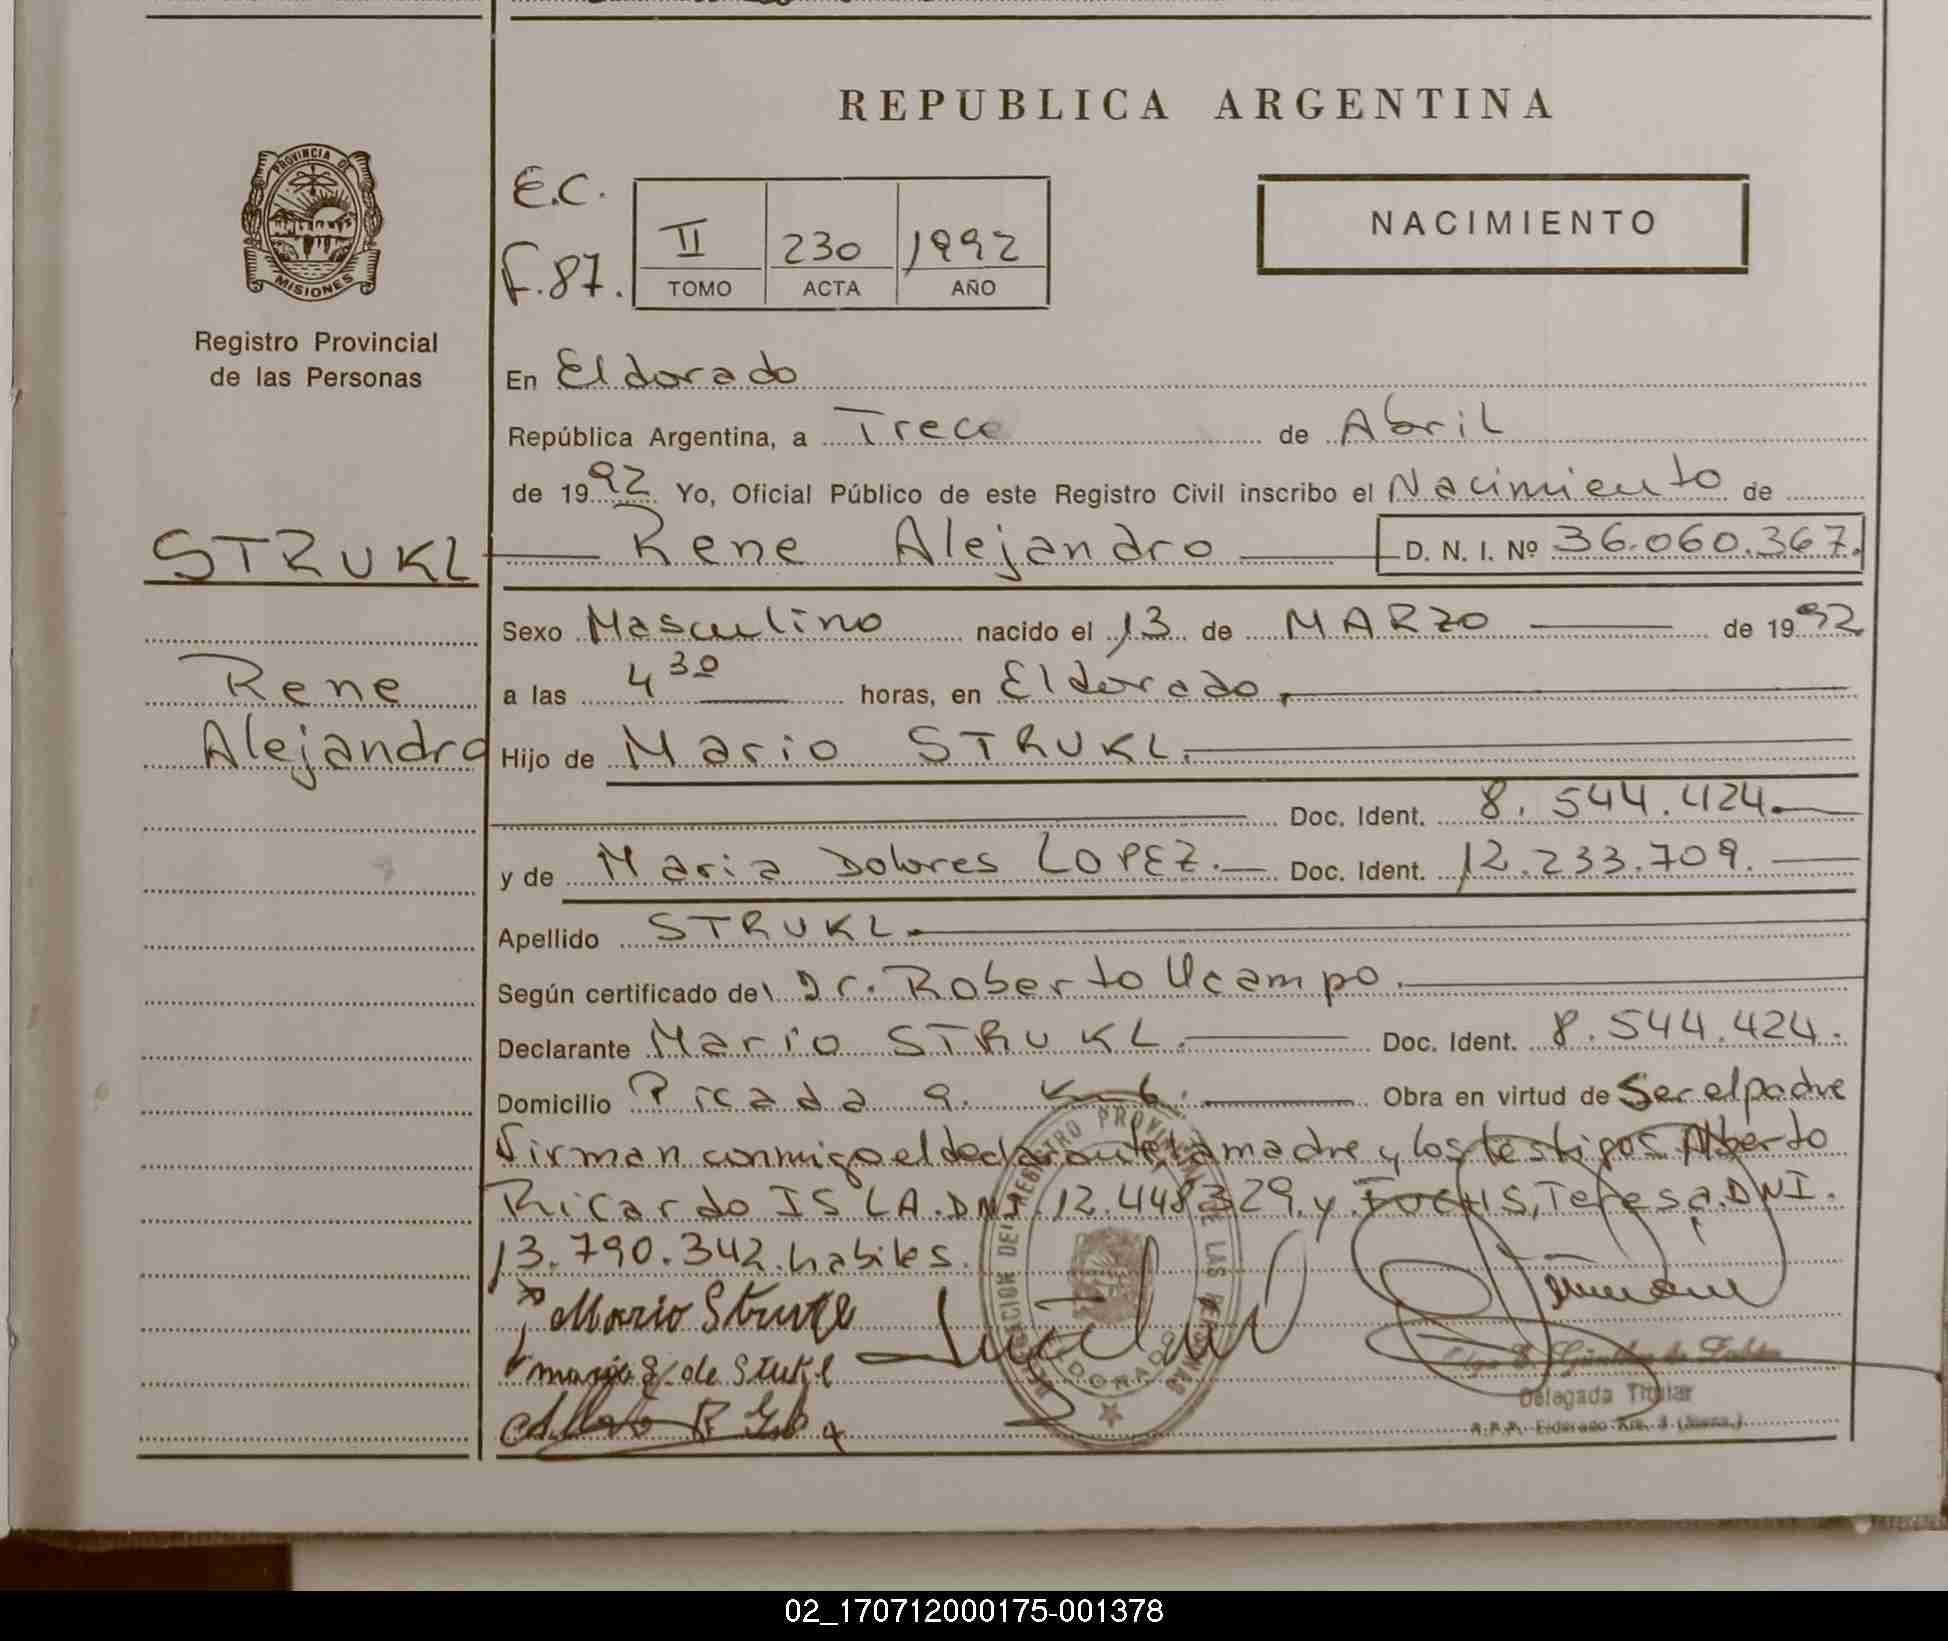 REPUBLICA ARGENTINA
PROVINCIA DE
MISIONES
Registro Provincial
de las Personas
E.C.
F.87.
II 230 1992
TOMO ACTA AÑO
NACIMIENTO
En Eldorado
República Argentina, a Trece de Abril
de 1992 Yo, Oficial Público de este Registro Civil inscribo el Nacimiento de
STRUKL Rene Alejandro D. N. I. Nº 36.060.367.
Sexo Masculino nacido el 13 de MARZO de 1992
Rene
Alejandro
a las 4 30 horas, en Eldorado,
Hijo de Mario STRUKL.
Doc. Ident. 8.544.424.
y de Maria Dolores LOPEZ. Doc. Ident. 12.233.709.
Apellido STRUKL.
Según certificado del Dr. Roberto Ucampo.
Declarante Mario STRUKL. Doc. Ident. 8.544.424.
Domicilio Picada 9. Km 6. Obra en virtud de Ser el padre
Firman conmigo el declarante, la madre y los testigos Alberto
Ricardo ISLA. DNI. 12.448329. y FOCHS, Teresa. DNI.
13.790.342. habiles.
Mario Strukl
maria L. de Strukl
Delegada Titular
02_170712000175-001378